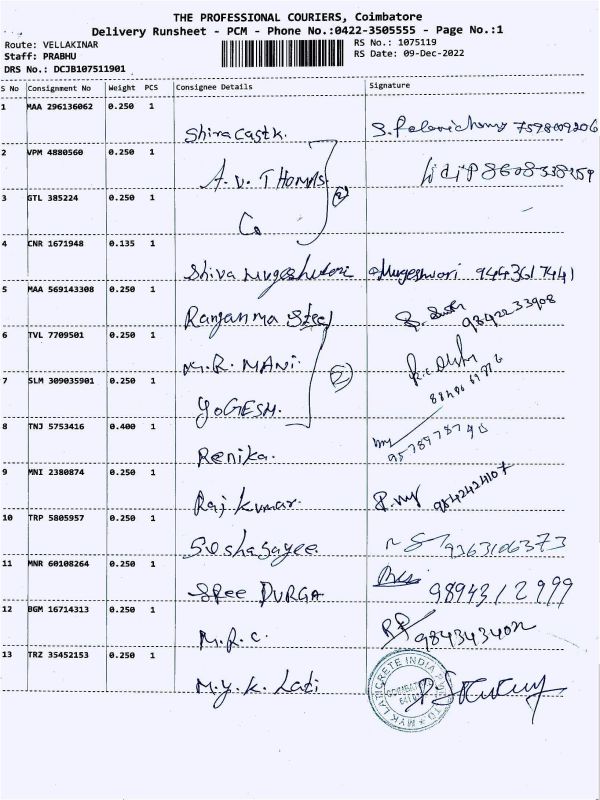 THE PROFESSIONAL COURIERS, Coimbatore
Delivery Runsheet - PCM - Phone No.:0422-3505555 - Page No.:1
Route: VELLAKINAR
RS No.: 1075119
Staff: PRABHU
RS Date: 09-Dec-2022
DRS No.: DCJB107511901
S No Consignment No Weight PCS Consignee Details Signature
1 MAA 296136062 0.250 1
7598009206
2 VPM 4880560 0.250 1
A.V. THOMAS
3 GTL 385224 0.250 1
Co
(2)
4 CNR 1671948 0.135 1
Shiva Mugeshwari Mugeshwari 9443617441
5 MAA 569143308 0.250 1
Ranganma Steel 9842233908
6 TVL 7709501 0.250 1
M.R. MANI.
7 SLM 309035901 0.250 1
YOGESH.
(2)
8 TNJ 5753416 0.400 1
Renika.
9 MNI 2380874 0.250 1
Raj Kumar. 9842424107
10 TRP 5805957 0.250 1
Seshasayee 9363106373
11 MNR 60108264 0.250 1
Sree DURGA 9894312999
12 BGM 16714313 0.250 1
M.R.C.
13 TRZ 35452153 0.250 1
M.Y.K. Lati
MYK LATICRETE INDIA PVT LTD
COIMBATORE